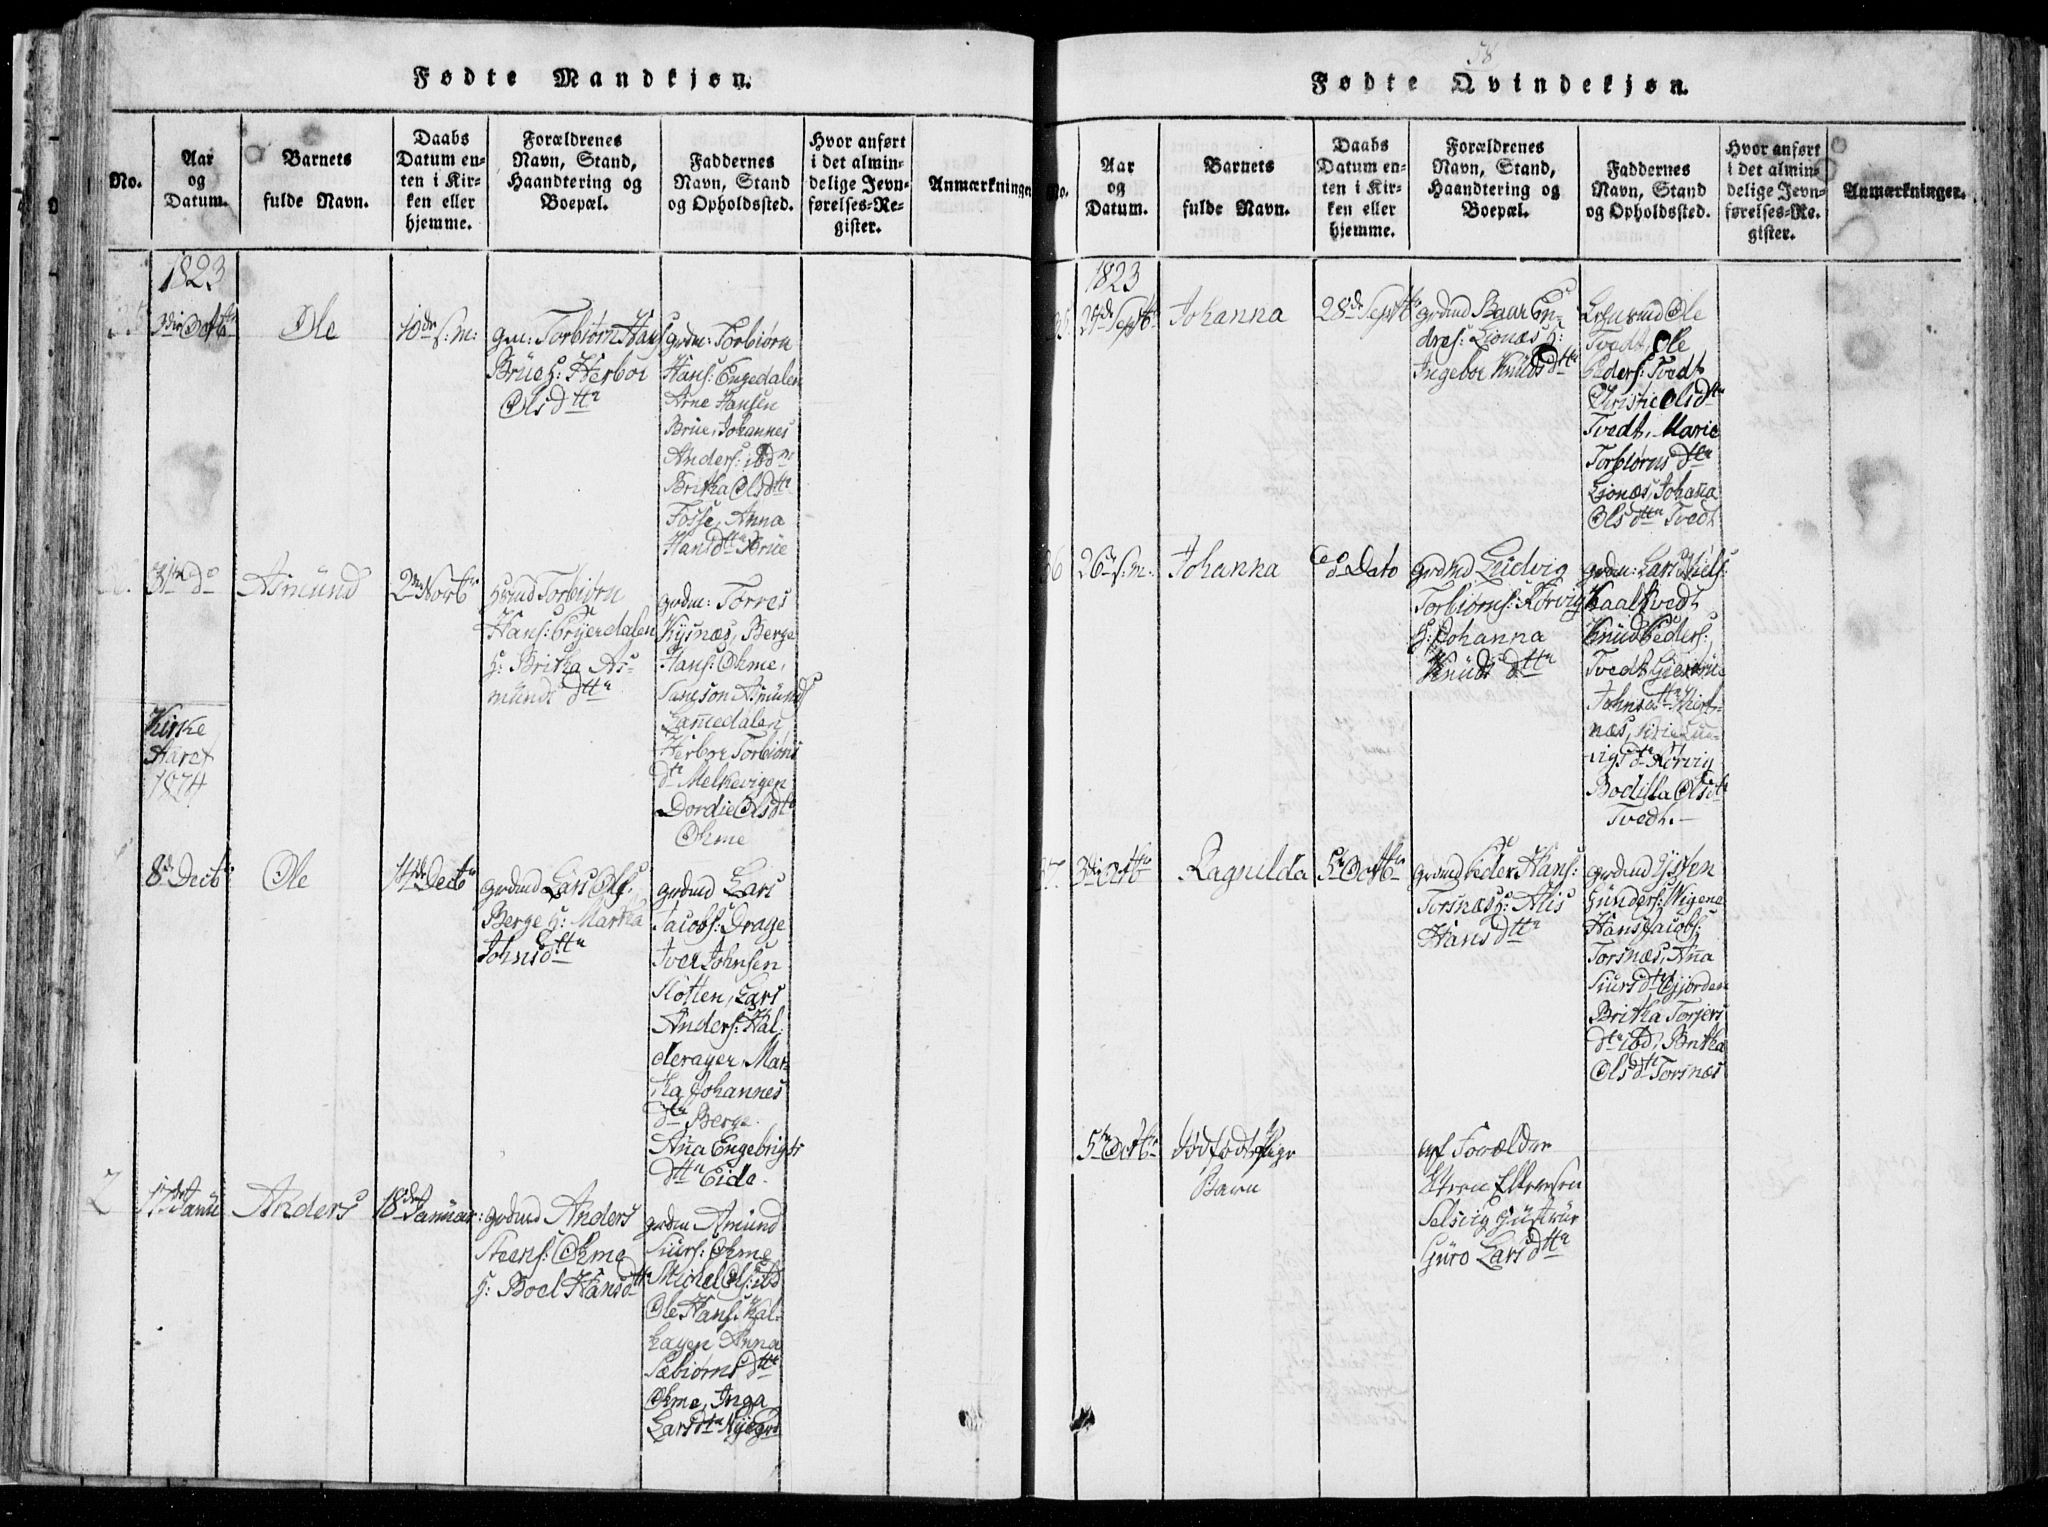 Fødte Mandkjøn.
No.
Aar
og
Datum.
Barnets
fulde Navn.
Daabs
Datum en-
ten i Kir-
ken eller
hjemme.
Forældrenes
Navn, Stand,
Haandtering og
Boepæl.
Faddernes
Navn, Stand
og Opholdssted.
Hvor anført
i det almin-
delige Jevn-
førelses-Re-
gister.
Anmærkninger
1823
3die Octbr
Ole
10de s: m:
gm: Torbiørn Hans:
Brüe h: Herbor
Ols dttr
grdm: Torbiørn
Hans: Engedalen
Arne Hansen
Brüe, Johannes
Anders: ibdm
Britha Olsdttr
Fosse, Anna
Hansdttr Brüe
31te do
Asmünd
2den Novbr
Hsmd Torbiørn
Hans:
h: Britha As-
münds dttr
grdm: Torres
Kysnæs, Berge
Hans: Ohme,
Samson Asmünds
Lammedalen,
Herbor Torbiørns
dtr Melkevigen
Dordie Olsdtr
Ohme
Kirke
Aaret
1824
8de Decbr
Ole
14de Decbr
grdmd Lars Ols:
Berge h: Martha
Johnsdttr
grdmd Lars
Jacobs: Drage
Iver Johnsen
Slotten, Lars
Anders: Hal-
derager, Mar-
tha Johannes
dtr Berge.
Aña Engebrigts
dttr Eide.
2
17de Janu
Anders
18de Januar:
grdmd Anders
Steens: Ohme
h: Boel Hansdttr
grdm Amünd
Siurs: Ohme
Michel Ols: ibd
Ole Hans: Hal-
Anna
Sæbiørns dttr
Ohme, Inga
Larsdtr
58
Fødte Qvindekjøn.
No.
Aar
og
Datum.
Barnets
fulde Navn.
Daabs
Datum en-
ten i Kir-
ken eller
hjemme.
Forældrenes
Navn, Stand,
Haandtering og
Boepæl.
Faddernes
Navn, Stand
og Opholdssted.
Hvor anført
i det almin-
delige Jevn-
førelses-Re-
gister.
Anmærkninger.
1823
Septbr
Johanna
28de Septbr
grdmd Baar En-
dres: Lionæs h:
Ingebor Knüdsdttr
Ole
Tvedt, Ole
Peders: Tvedt
Christie Olsdttr
Tvedt, Marie
Torbiørnsdttr
Lionæs, Johaña
Ols dttr Tvedt
36
26de s: m:
Johanna
do Dato
grdmd Lüdvig
Torbiørns: Rørvig
h: Johanna
Knüds dttr
grdm: Lars Niels:
Kaaltvedt
Knüd Peders:
Tvedt
Johns dttr
næs,
vigs dtr Rørvig
Bodilla Olsdtr
Tvedt.
37
3die Octbr
Ragnilda
5te Octbr
grdmd Peder Hans:
Torsnæs h: Alis
Hans dttr
grdmd Østen
Günders: Wigene
Hans Jacobs:
Torsnæs, Aña
Siursdtr Gjorden
Britha Torgiers
dtr ibd, Britha
Olsdtr Torsnæs
5te Octbr
dødfødt Pige
Barn
af Forældre
Selsvig Hüstrüe
Güro Larsdttr